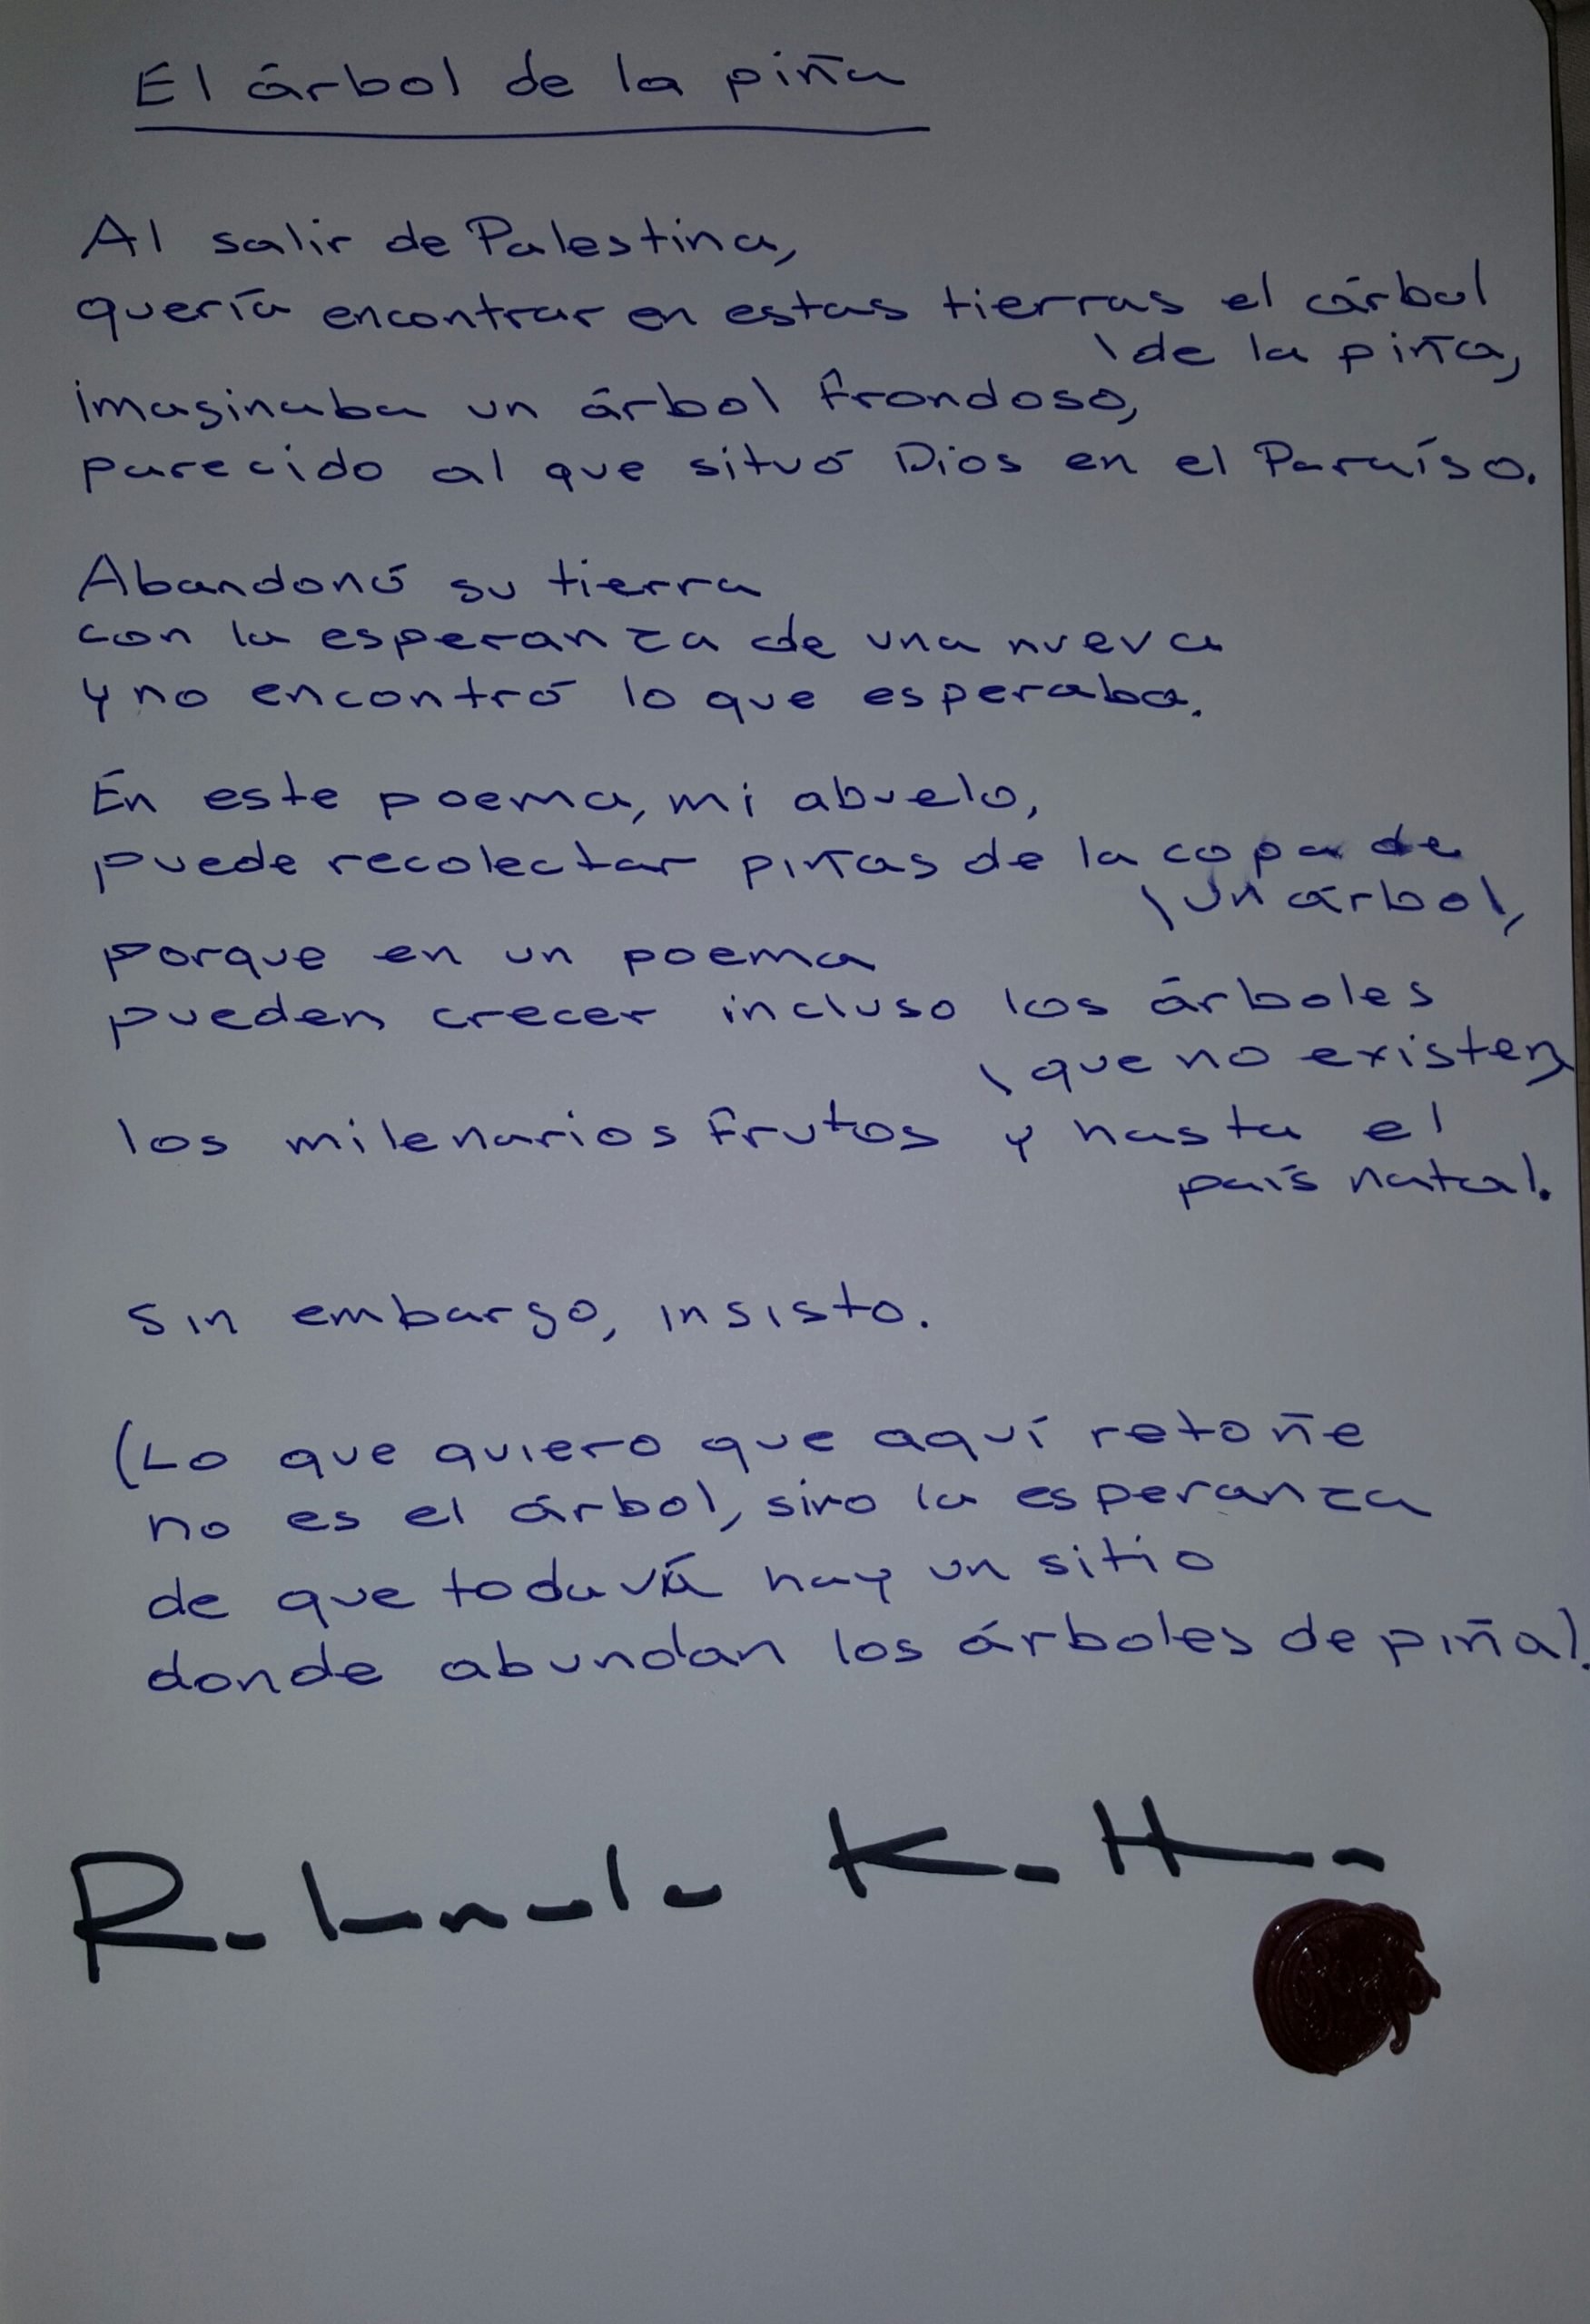 El árbol de la piña
Al salir de Palestina,
quería encontrar en estas tierras el árbol
\de la piña,
imaginaba un árbol frondoso,
parecido al que situó Dios en el Paraíso.
Abandonó su tierra
con la esperanza de una nueva
y no encontró lo que esperaba.
En este poema, mi abuelo,
puede recolectar piñas de la copa de
\un árbol,
porque en un poema
pueden crecer incluso los árboles
\que no existen,
los milenarios frutos y hasta el
país natal.
Sin embargo, insisto.
(Lo que quiero que aquí retoñe
no es el árbol, sino la esperanza
de que todavía hay un sitio
donde abundan los árboles de piña).